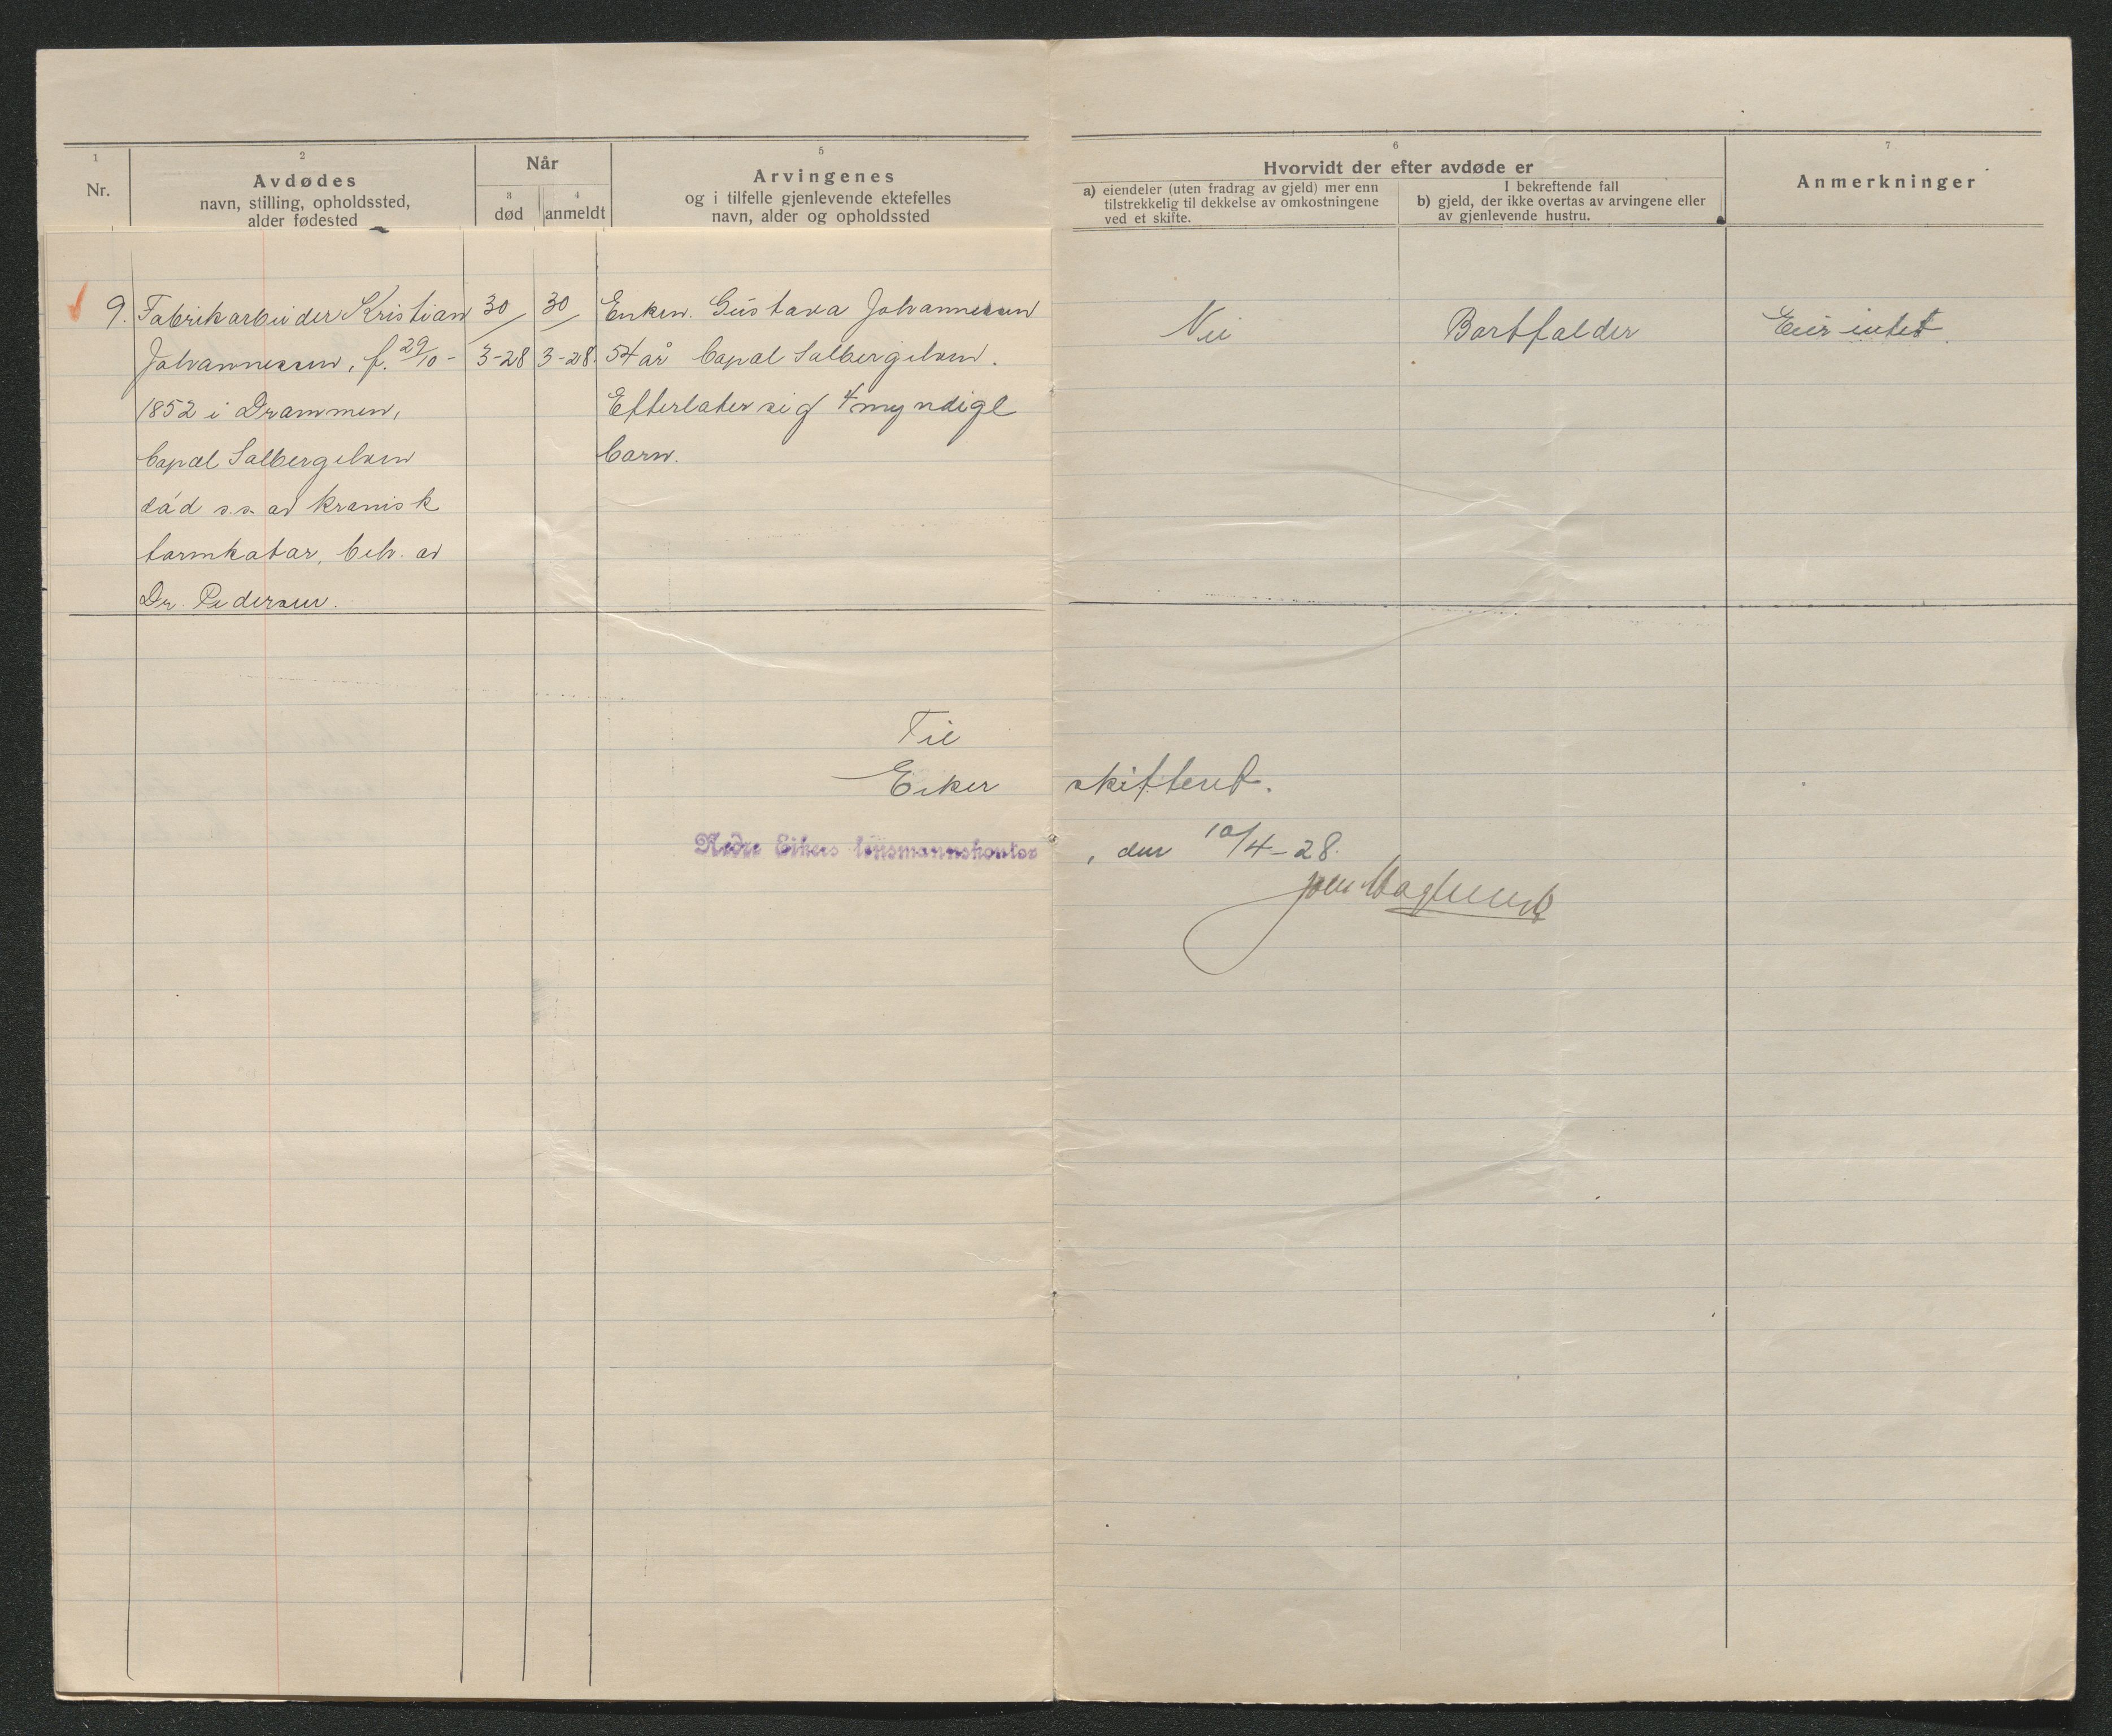 1
Nr.
2
Avdødes
navn, stilling, opholdssted,
alder fødested
Når
3
død
4
anmeldt
5
Arvingenes
og i tilfelle gjenlevende ektefelles
navn, alder og opholdssted
6
Hvorvidt der efter avdøde er
a) eiendeler (uten fradrag av gjeld) mer enn
tilstrekkelig til dekkelse av omkostningene
ved et skifte.
I bekreftende fall
b) gjeld, der ikke overtas av arvingene eller
av gjenlevende hustru.
7
Anmerkninger
9. Fabrikarbeider Kristian
Johannessen, f. 29/10-
1852 i Drammen,
bopæl Solbergelven
død s.s. av kronisk
tarmkatar, beh. av
Dr. Pedersen.
30/
3-28
30/
3-28.
Enken. Gustava Johannessen
54 år bopæl Solbergelven.
Efterlater sig 4 myndige
barn.
Nei
Bortfalder
Eier intet.
Til
Eiker skifteret.
Nedre Eikers lensmannskontor, den 10/4-28.